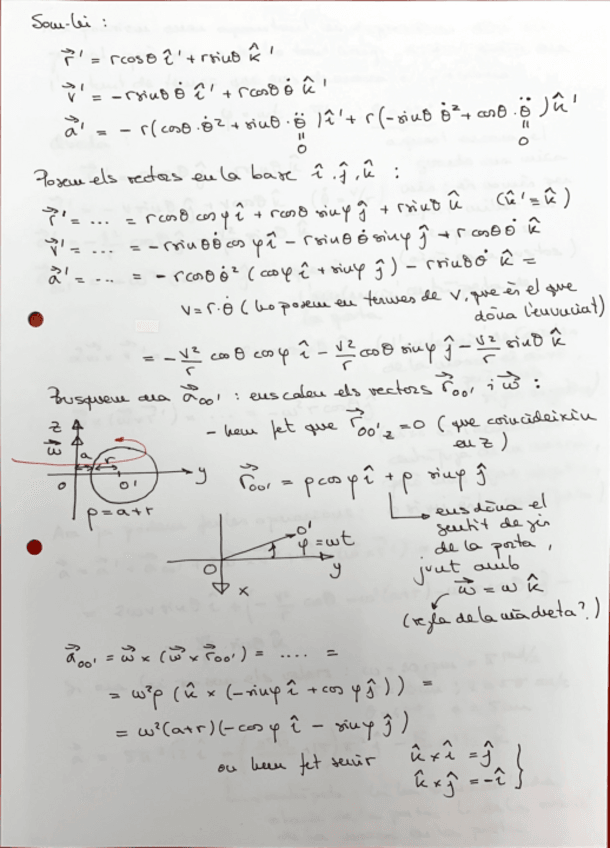 Som-hi :
r⃗' = rcosθ î' + rsinθ k̂'
v⃗' = -rsinθ θ̇ î' + rcosθ θ̇ k̂'
a⃗' = - r(cosθ·θ̇² + sinθ·θ̈)î' + r(-sinθ θ̇² + cosθ·θ̈)k̂'
= 0 = 0
Posem els vectors en la base î, ĵ, k̂ :
r⃗' = ... = rcosθ cosφ î + rcosθ sinφ ĵ + rsinθ k̂ (k̂' = k̂)
v⃗' = ... = -rsinθ θ̇ cosφ î - rsinθ θ̇ sinφ ĵ + rcosθ θ̇ k̂
a⃗' = ... = -rcosθ θ̇² (cosφ î + sinφ ĵ) - rsinθ θ̇ k̂ =
v = r·θ̇ (ho posem en termes de v, que és el que
dóna l'enunciat)
= -v²/r cosθ cosφ î - v²/r cosθ sinφ ĵ - v²/r sinθ k̂
Busquem ara a⃗oo' : ens calen els vectors r⃗oo' i ω⃗ :
- hem fet que r⃗oo'z = 0 (que coincideixin
en z)
z
ω⃗
a
r
o
o'
y
ρ = a+r
r⃗oo' = ρcosφ î + ρ sinφ ĵ
ens dóna el
sentit de gir
de la porta,
junt amb
ω⃗ = ω k̂
(regla de la mà dreta?)
o'
φ = ωt
o
y
x
a⃗oo' = ω⃗ × (ω⃗ × r⃗oo') = .... =
= ω²ρ (k̂ × (-sinφ î + cosφ ĵ)) =
= ω²(a+r)(-cosφ î - sinφ ĵ)
on hem fet servir k̂ × î = ĵ
k̂ × ĵ = -î }